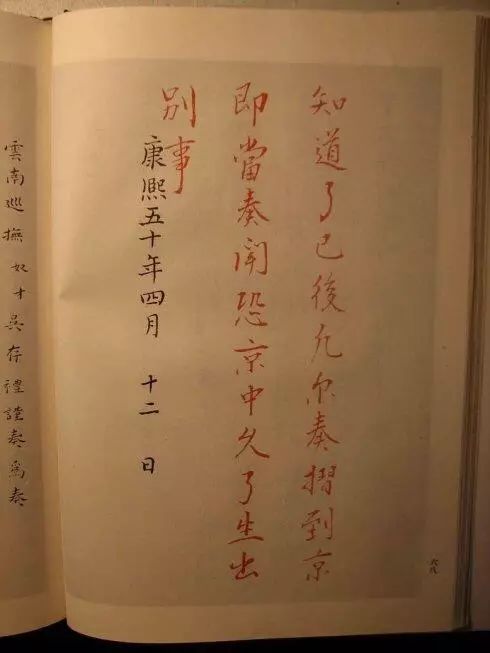 知道了已後凡尔奏摺到京
即當奏聞恐京中久了生出
别事
康熙五十年四月 十二 日
六八
雲南巡撫奴才吳存禮謹奏為奏